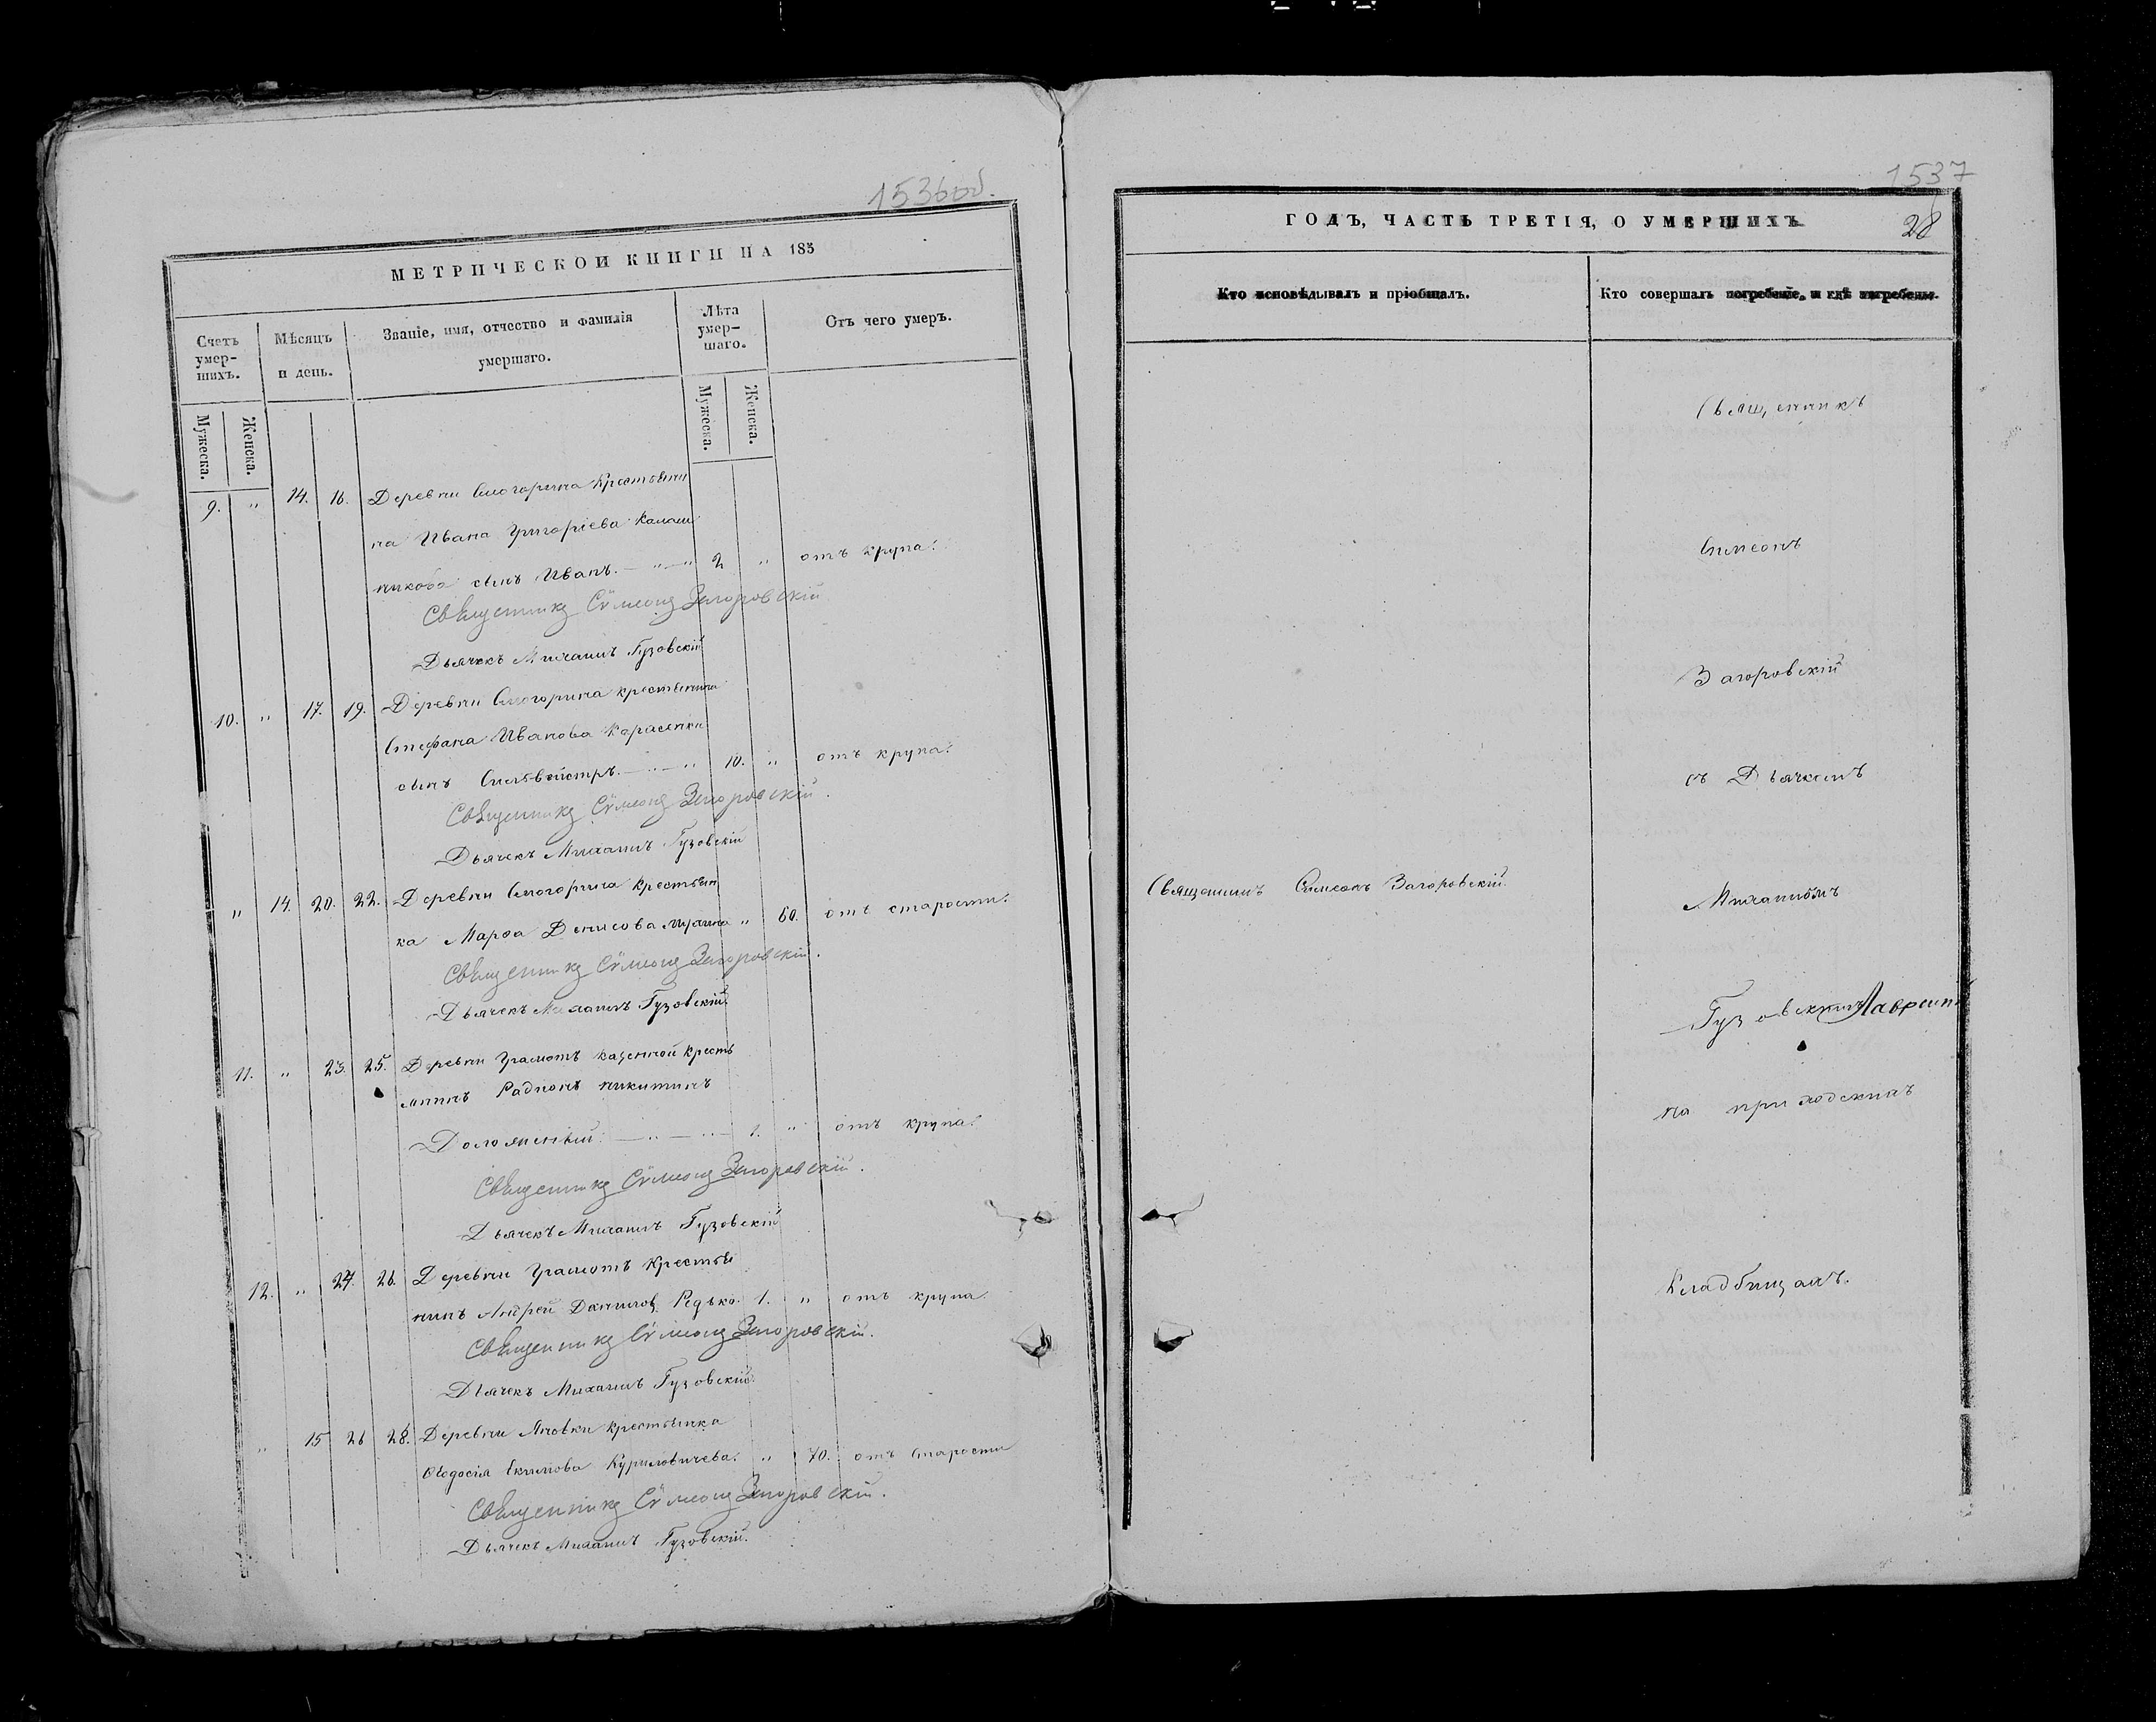 1536об.
МЕТРИЧЕСКОЙ КНИГИ НА 185
Счетъ умер-
шихъ.
Мѣсяцъ
и день.
Званіе, имя, отчество и фамилія
умершаго.
Лѣта
умер-
шаго.
Отъ чего умеръ.
Мужеска.
Женска.
Мужеска.
Женска.
9. " 14. 16. Деревни Смогорина крестьяни
на Ивана Григоріева
никова сынъ Иванъ. — " — " 2 " отъ крупа.
Священникъ Сѵмеонъ Загоровскій
Дьячекъ Михаилъ Гузовскій
10. " 17. 19. Деревни Смогорина крестьянина
Стефана Иванова
сынъ Сильвестръ. — " — " 10. " отъ крупа.
Священникъ Сѵмеонъ Загоровскій.
Дьячекъ Михаилъ Гузовскій
" 14. 20. 22. Деревни Смогорина крестьян
ка Марѳа Денисова " 60. отъ старости.
Священникъ Сѵмеонъ Загоровскій.
Дьячекъ Михаилъ Гузовскій.
11. " 23. 25. Деревни Грамотъ казенной кресть
янинъ Радионъ Никитинъ
— " — " — 1. " отъ крупа.
Священникъ Сѵмеонъ Загоровскій.
Дьячекъ Михаилъ Гузовскій
12. " 24. 26. Деревни Грамотъ крестья
нинъ Андрей Данилов Редько. 1. " отъ крупа.
Священникъ Сѵмеонъ Загоровскій.
Дьячекъ Михаилъ Гузовскій.
" 15 26 28. Деревни Яновки крестьянка
Ѳеодосія Екимова Куриловичева. " 70. отъ старости
Священникъ Сѵмеонъ Загоровскій.
Дьячекъ Михаилъ Гузовскій.
1537
28
ГОДЪ, ЧАСТЬ ТРЕТІЯ, О УМЕРШИХЪ
Кто исповѣдывалъ и пріобщалъ.
Кто совершалъ погребеніе, и гдѣ погребены.
Священникъ
Симеонъ
Загоровскій
съ Дьячкомъ
Священникъ Симеонъ Загоровскій.
Михаиломъ
Гузовскимъ
на приходскихъ
Кладбищахъ.